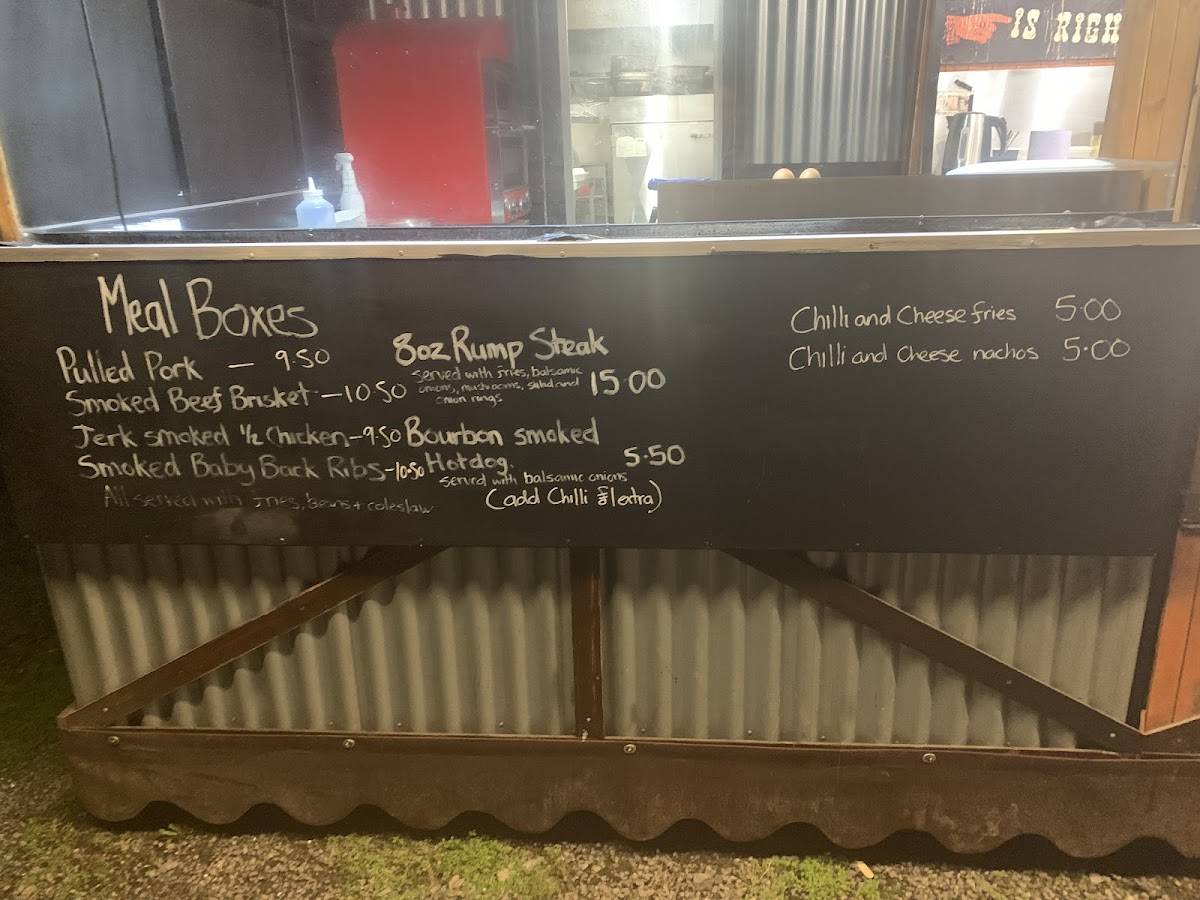 IS RIGH
Meal Boxes
Pulled Pork — 9.50
Smoked Beef Brisket — 10.50
Jerk smoked 1/2 Chicken - 9.50
Smoked Baby Back Ribs - 10.50
All served with fries, beans + coleslaw
8oz Rump Steak
served with fries, balsamic
onions, mushrooms, salad and
onion rings
15.00
Bourbon smoked
Hotdog. 5.50
served with balsamic onions
(add Chilli £1 extra)
Chilli and Cheese fries 5.00
Chilli and Cheese nachos 5.00